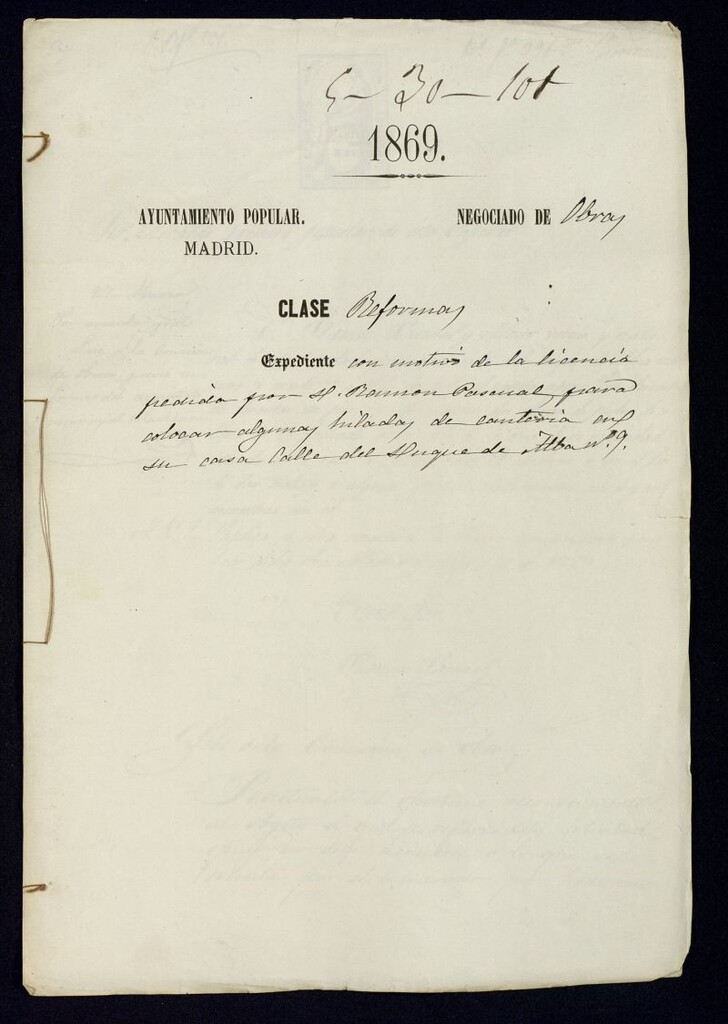 5-30-101
1869.
AYUNTAMIENTO POPULAR. NEGOCIADO DE Obras
MADRID.
CLASE Reformas
Expediente con motivo de la licencia
pedida por D. Ramon Pascual, para
colocar algunas hiladas de canteria en
su casa Calle del Duque de Alba nº. 9.